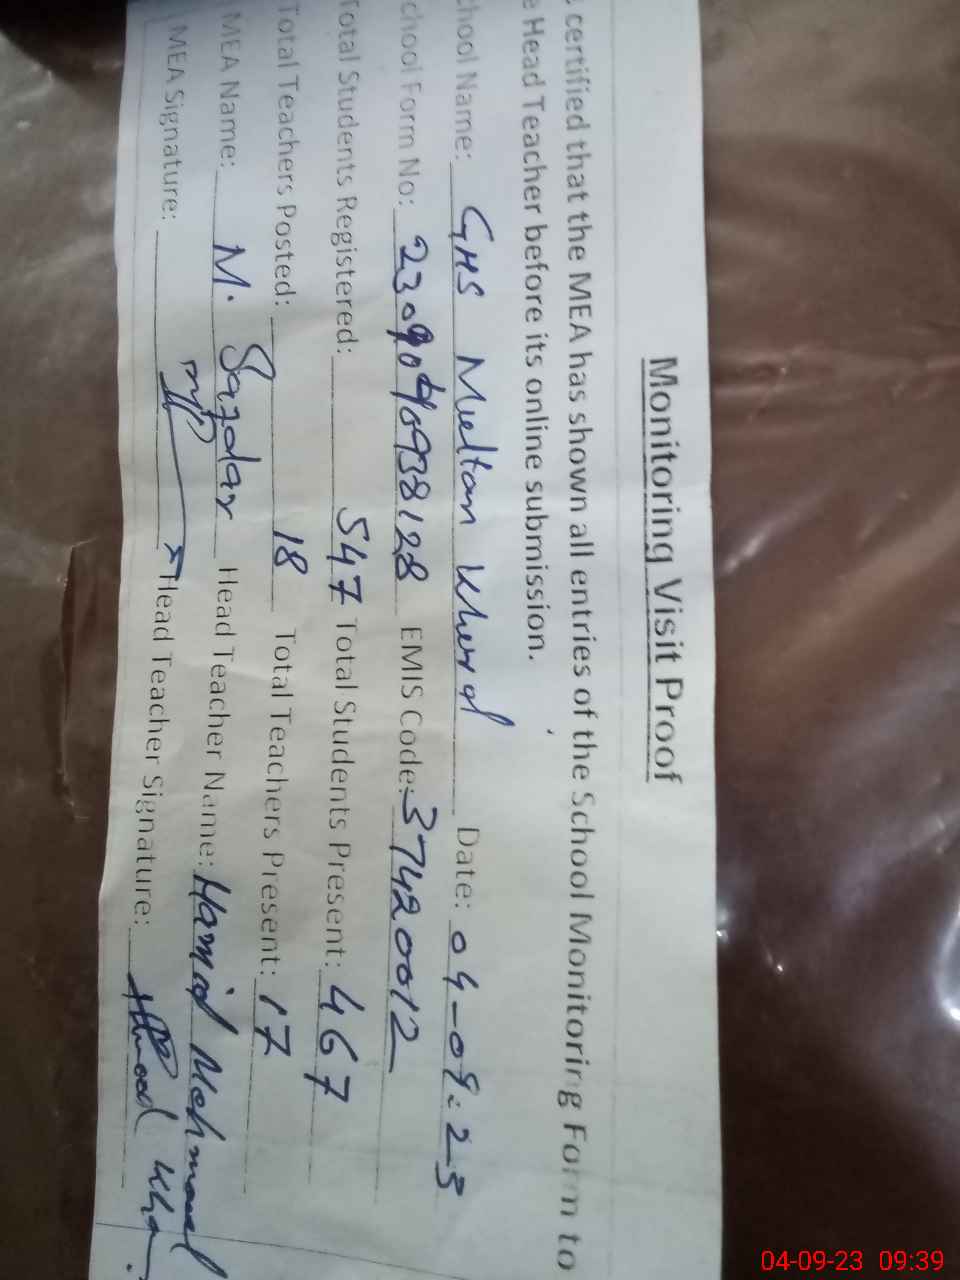 Monitoring Visit Proof
certified that the MEA has shown all entries of the School Monitoring Form to
e Head Teacher before its online submission.
chool Name: GHS Multan Khurd Date: 04-09-23
chool Form No: EMIS Code: 37420012
Total Students Registered: 547 Total Students Present: 467
Total Teachers Posted: 18 Total Teachers Present: 17
MEA Name: M. Safdar Head Teacher Name: Hamid Mehmood
MEA Signature: Head Teacher Signature:
04-09-23 09:39